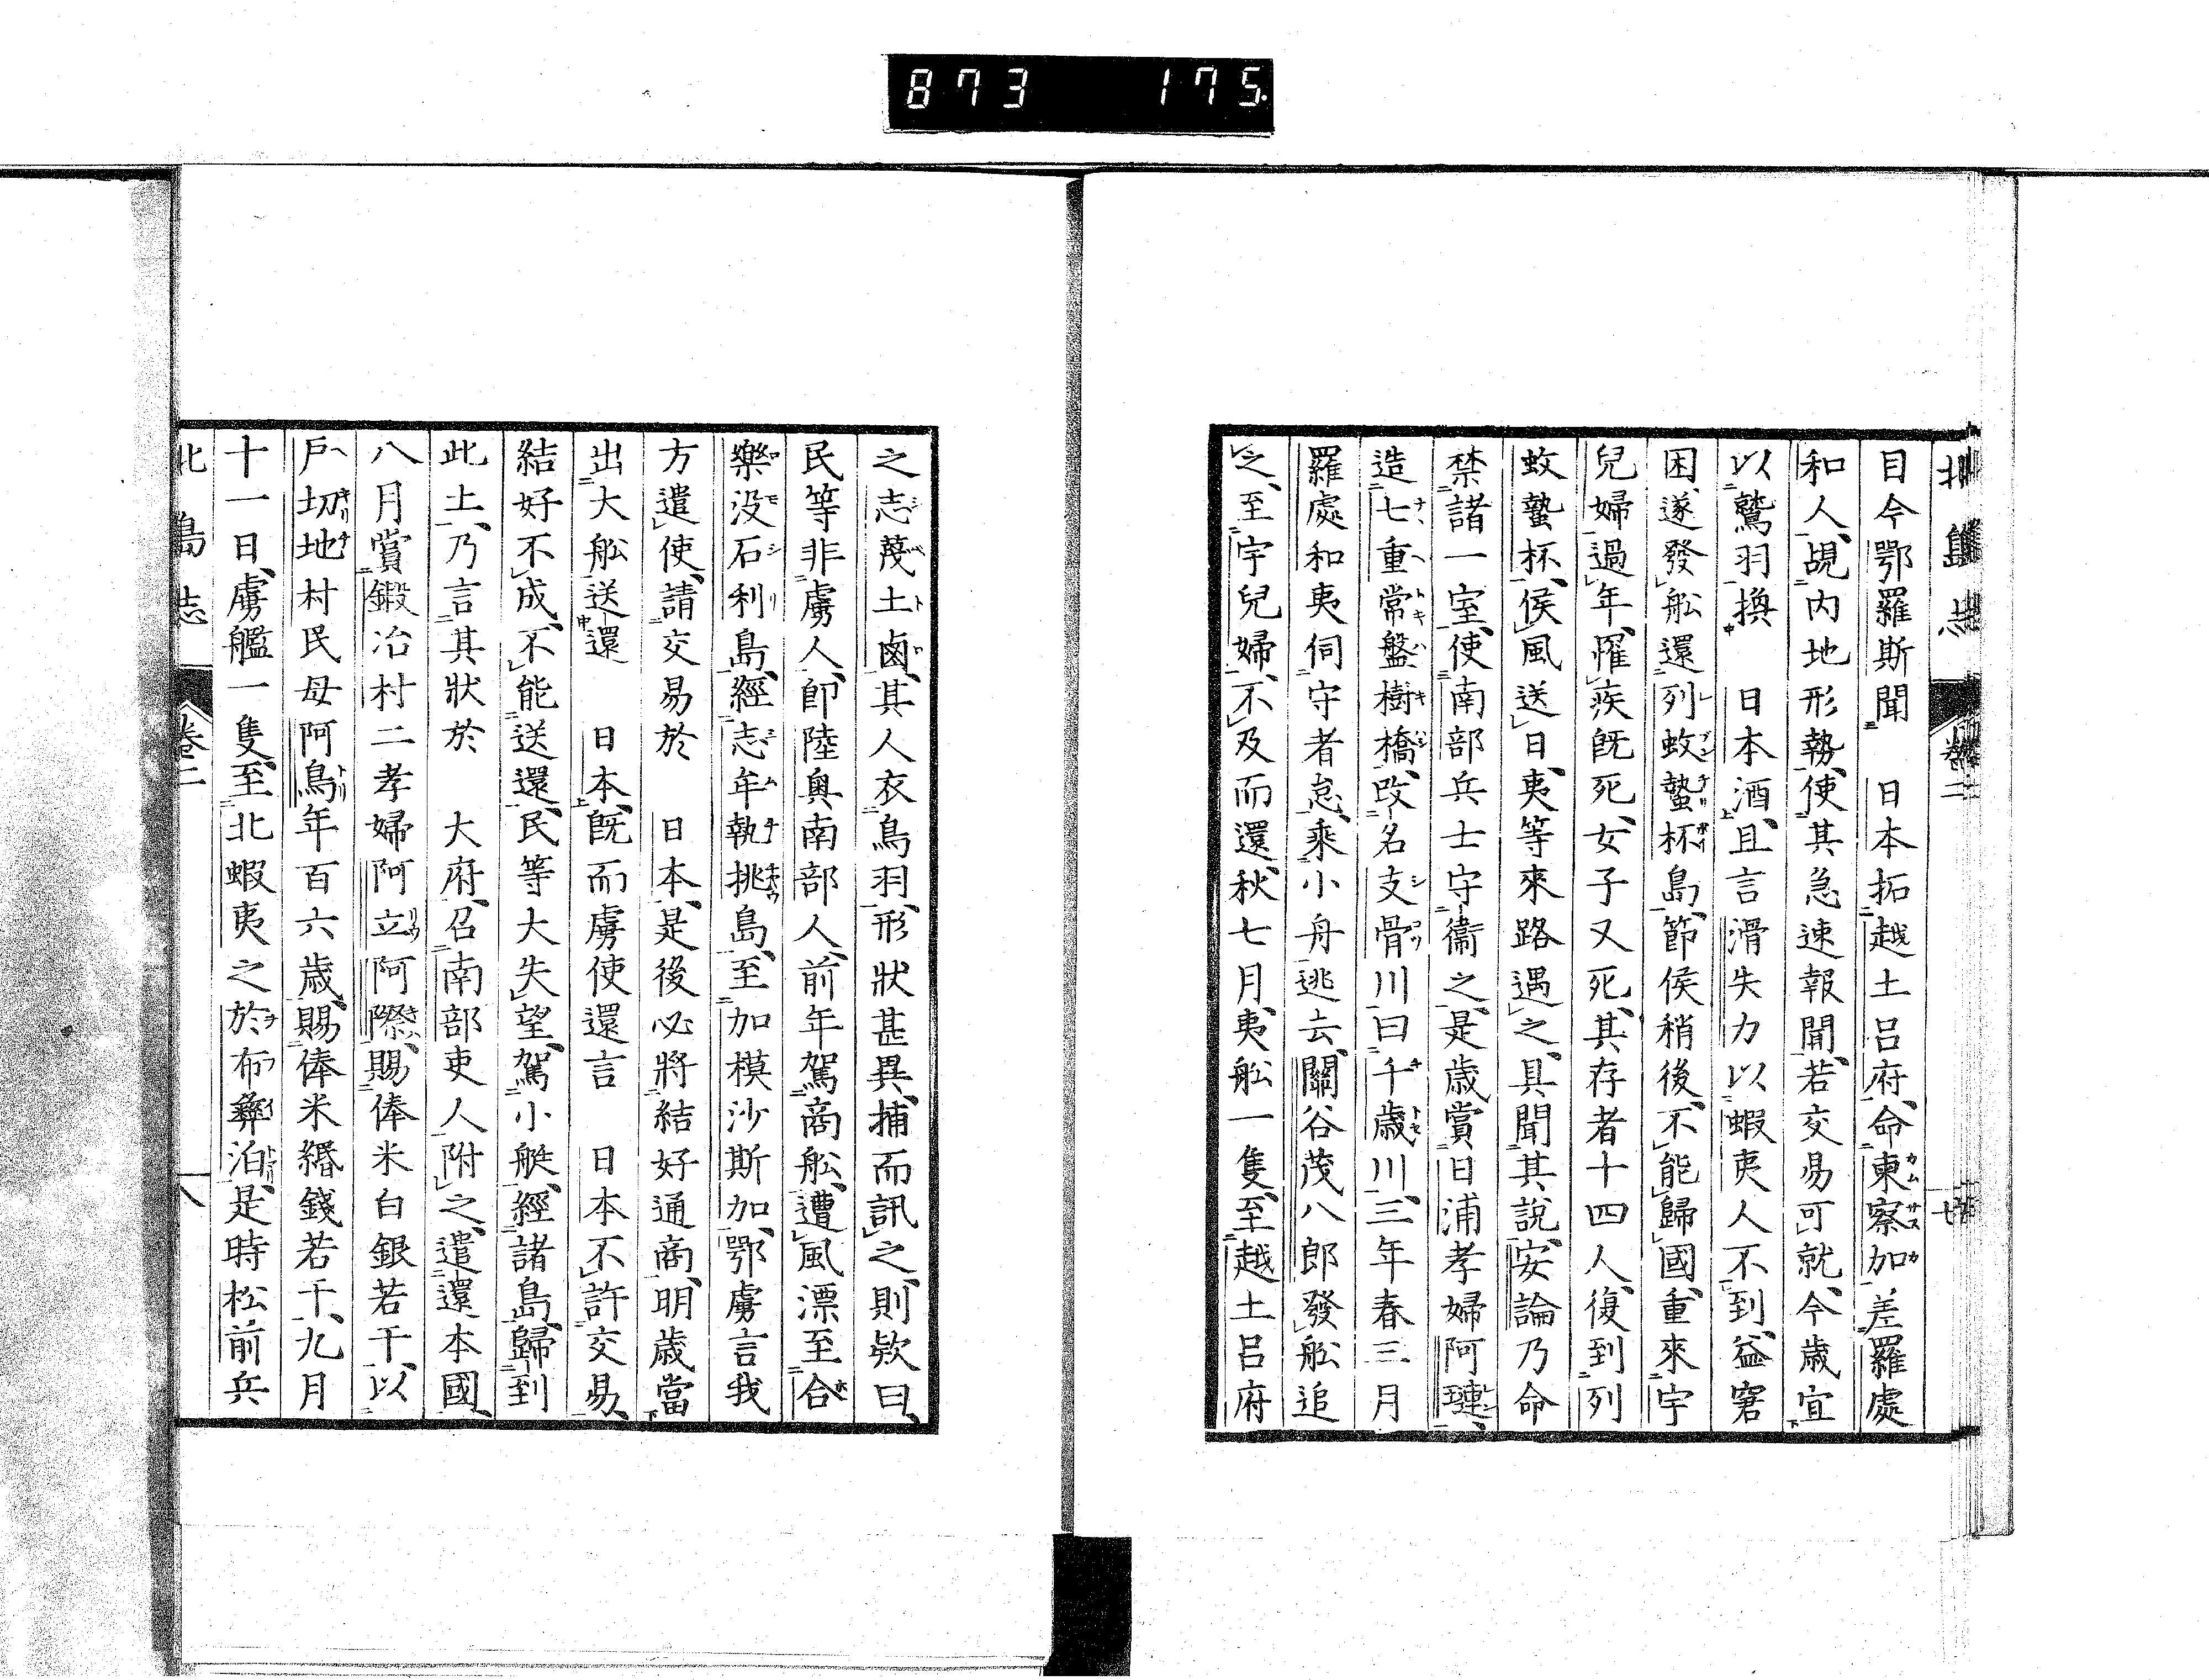 873 175
北島志 卷二
目今鄂羅斯聞 日本拓越土呂府、命柬察加差羅處
和人、覘内地形勢、使其急速報聞、若交易可就、今歳宜
以鷲羽換 日本酒、且言滑失力以蝦夷人不到、益窘
困、遂發舩還列蚊蟄杯島、節侯稍後、不能歸國、重來宇
兒婦過年、罹疾既死、女子又死、其存者十四人、復到列
蚊蟄杯、侯風送日、夷等來路遇之、具聞其説、安論乃命
禁諸一室、使南部兵士守衞之、是歳賞日浦孝婦阿璉、
造七重常盤樹橋、改名支骨川曰千歳川、三年春三月
羅處和夷伺守者怠、乘小舟逃去、關谷茂八郎發舩追
之、至宇兒婦、不及而還、秋七月、夷舩一隻、至越土呂府
之志蔑土鹵、其人衣鳥羽、形狀甚異、捕而訊之、則欵曰、
民等非虜人、卽陸奥南部人、前年駕商舩、遭風漂至合
樂没石利島、經志年執挑島、至加模沙斯加、鄂虜言我
方遣使、請交易於 日本、是後必將結好通商、明歳當
出大舩送還 日本、既而虜使還言 日本不許交易、
結好不成、不能送還、民等大失望、駕小艇、經諸島、歸到
此土、乃言其狀於 大府、召南部吏人附之、遣還本國、
八月賞鍛冶村二孝婦阿立阿際、賜俸米白銀若干、以
戸切地村民母阿鳥年百六歳、賜俸米緡錢若干、九月
十一日、虜艦一隻、至北蝦夷之於布彝泊、是時松前兵
北島志 卷二 十八